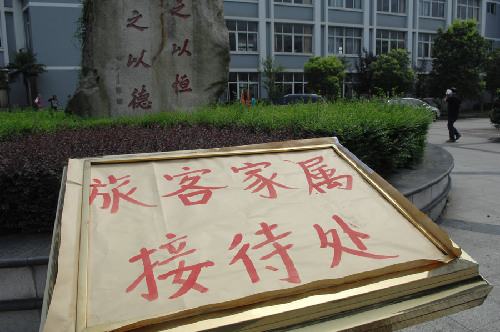 旅客家属
接待处
之以恒
之以德